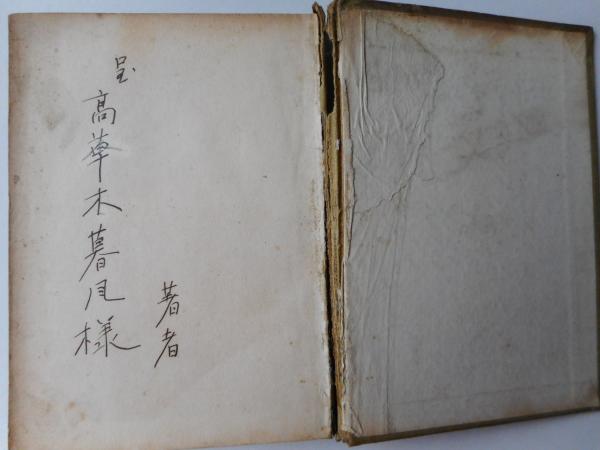 呈
高草木暮风様
著者